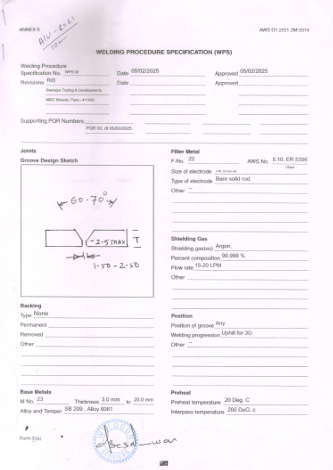 ANNEX E
AWS D1.2/D1.2M:2014
WELDING PROCEDURE SPECIFICATION (WPS)
Welding Procedure
Specification No. WPS 02 Date 05/02/2025 Approved 05/02/2025
Revisions R/0 Date Approved
MIDC Bhosari, Pune - 411026
Supporting PQR Numbers
PQR 02, dt 05/02/2025
Joints
Groove Design Sketch
60-70°
-2.5 max
T
1.50-2.50
Filler Metal
F-No. 22 AWS No. 5.10, ER 5356
Size of electrode
Type of electrode Bare solid rod.
Other
Shielding Gas
Shielding gas(es) Argon,
Percent composition 99.999 %
Flow rate 15-20 LPM
Other
Backing
Type None
Permanent
Removed
Other
Position
Position of groove Any
Welding progression Uphill for 3G
Other
Base Metals
M No. 23 Thickness 3.0 mm to 20.0 mm
Alloy and Temper SB 209 , Alloy 6061
Preheat
Preheat temperature 20 Deg. C
Interpass temperature 200 DeG. c